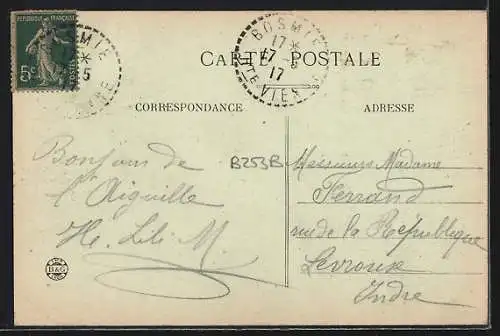 REPUBLIQUE FRANÇAISE
5c POSTES
BOSMIE
*
5
BOSMIE
17 *
17 - 5
17
HTE VIENNE
CARTE POSTALE
CORRESPONDANCE
ADRESSE
Bonjour de
l'Aiguille
H. Lili M.
B253B
B&G
Messieurs Madame
Ferrand
rue de la République
Levroux
Indre